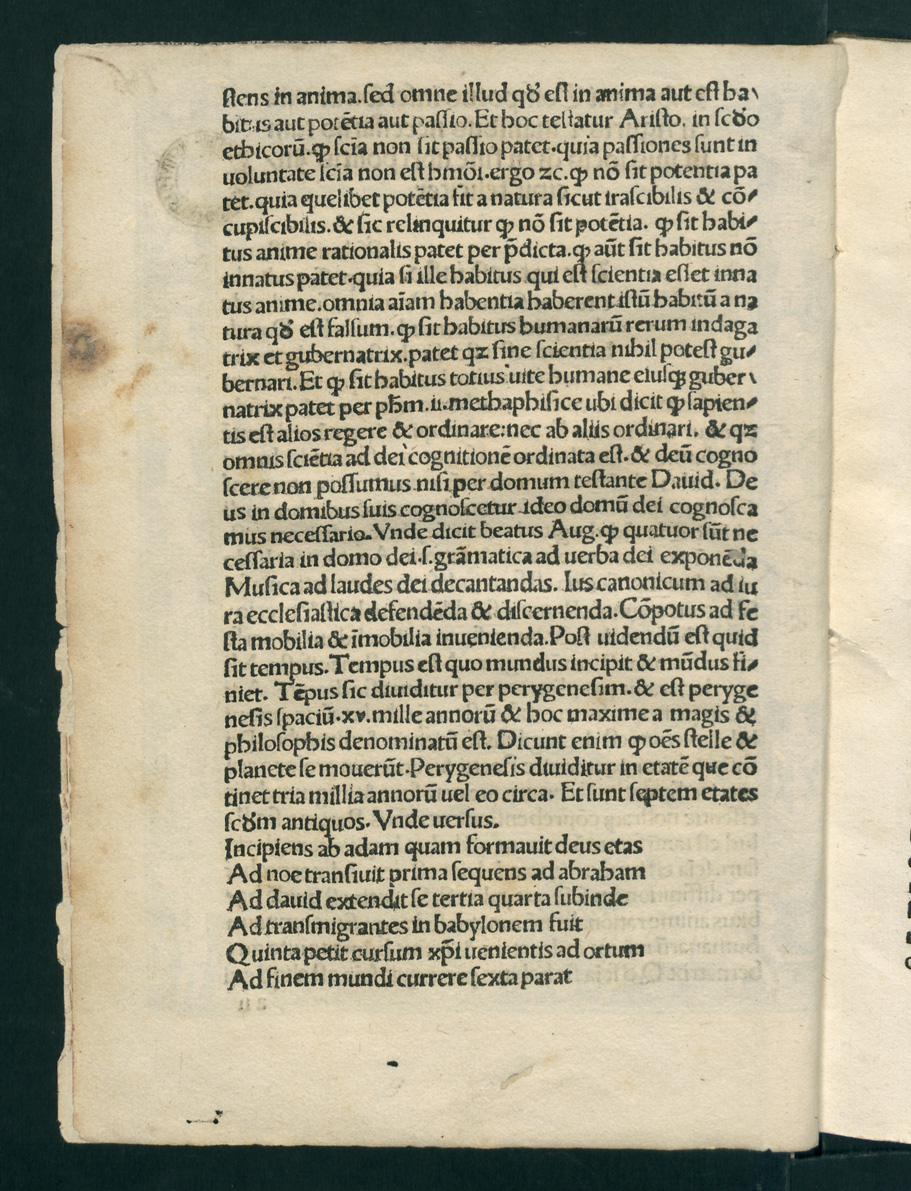 stens in anima.sed omne illud qđ est in anima aut est ha\
bitus aut potētia aut passio. Et hoc testatur Aristo. in scđo
ethicorū.ꝙ scīa non sit passio patet.quia passiones sunt in
uoluntate scīa non est hmōi.ergo ⁊c.ꝙ nō sit potentia pa
tet.quia quelibet potētia fit a natura sicut irascibilis & cō⸗
cupiscibilis.& sic relinquitur ꝙ nō sit potētia. ꝙ sit habi⸗
tus anime rationalis patet per p̄dicta.ꝙ aūt sit habitus nō
innatus patet.quia si ille habitus qui est scientia esset inna
tus anime.omnia aīam habentia haberent istū habitū a na
tura qđ est falsum.ꝙ sit habitus humanarū rerum indaga
trix et gubernatrix.patet qꝫ sine scientia nihil potest gu⸗
bernari. Et ꝙ sit habitus totius uite humane eiusqꝫ guber\
natrix patet per pħm.ii.methaphisice ubi dicit ꝙ sapien⸗
tis est alios regere & ordinare:nec ab aliis ordinari. & qꝫ
omnis sciētia ad dei cognitionē ordinata est.& deū cogno
scere non possumus nisi per domum testante Dauid. De
us in domibus suis cognoscetur ideo domū dei cognosca
mus necessario. Vnde dicit beatus Aug.ꝙ quatuor sūt ne
cessaria in domo dei.s.grāmatica ad uerba dei exponēda
Musica ad laudes dei decantandas. Ius canonicum ad iu
ra ecclesiastica defendēda & discernenda. Cōpotus ad fe
sta mobilia & īmobilia inuenienda. Post uidendū est quid
sit tempus. Tempus est quo mundus incipit & mūdus fi⸗
niet. Tēpus sic diuiditur per perygenesim.& est peryge
nesis spaciū.xv.mille annorū & hoc maxime a magis &
philosophis denominatū est. Dicunt enim ꝙ oēs stelle &
planete se mouerūt. Perygenesis diuiditur in etatē que cō
tinet tria millia annorū uel eo circa. Et sunt septem etates
scđm antiquos. Vnde uersus.
Incipiens ab adam quam formauit deus etas
Ad noe transiuit prima sequens ad abraham
Ad dauid extendit se tertia quarta subinde
Ad transmigrantes in babylonem fuit
Quinta petit cursum xp̄i uenientis ad ortum
Ad finem mundi currere sexta parat